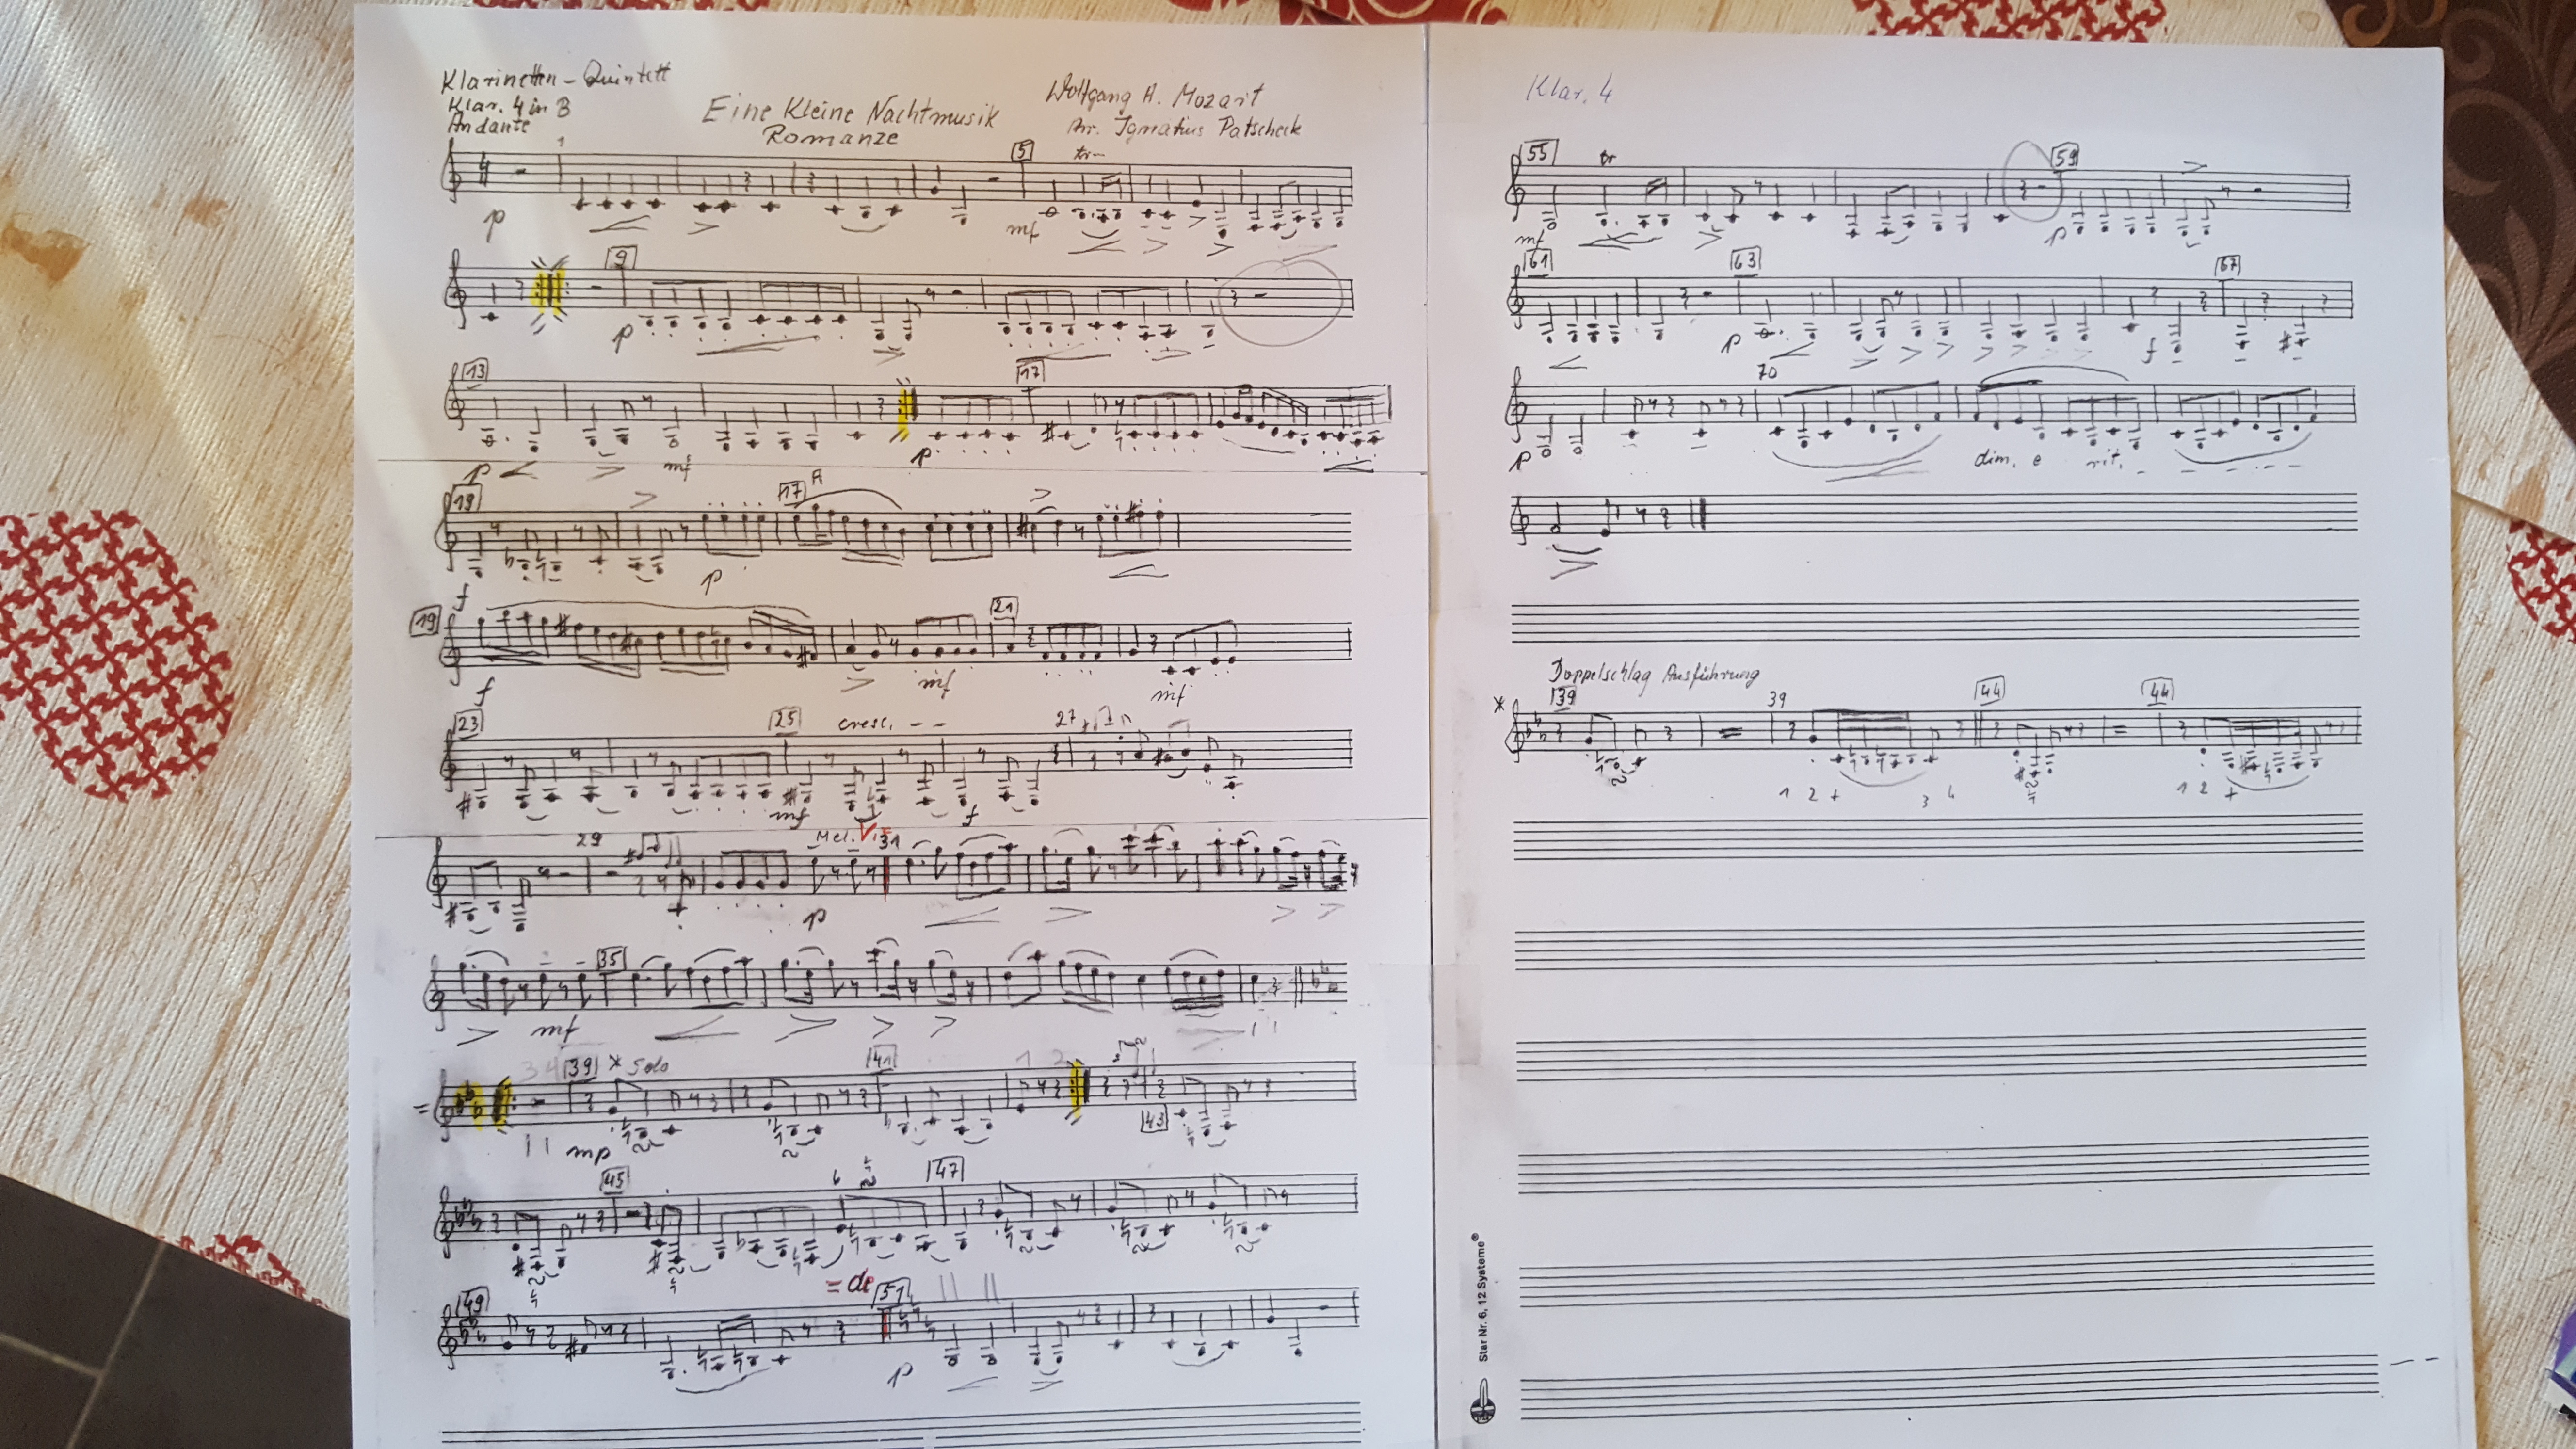 Klarinetten-Quintett
Klar. 4 in B
Andante
Eine Kleine Nachtmusik
Romanze
Wolfgang A. Mozart
Arr. Ignatius Patscheck
5 tr
p mf
9
p
13 17
p mf p
19 17 A
f p
19 21
f mf mf
23 25 cresc. -- 27
mf f
29 Mel. 31
p
35
mf
34 39 * Solo 41 1 2
mp 43
45 6 47
49 = de 51
p
Klar. 4
55 tr 59
mf p
61 63 67
p f
70
p dim. e rit. - - - - - -
Doppelschlag Ausführung
* 39 39 44 44
1 2 + 3 4 1 2 +
Star Nr. 6, 12 Systeme®